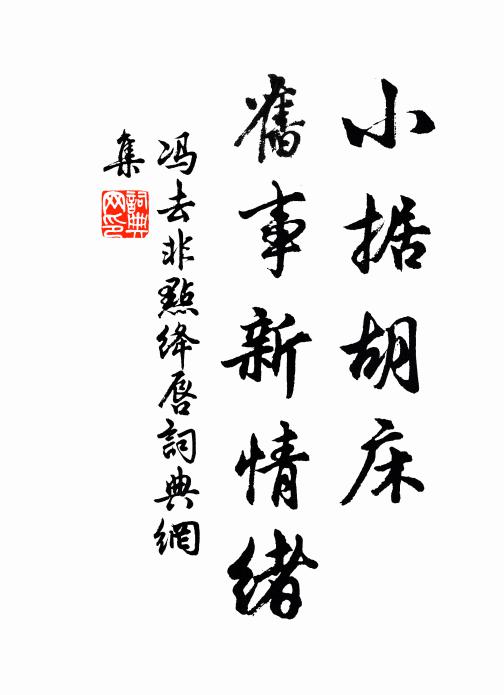 小据胡床
舊事新情緒
冯去非點绛唇詞典網
集
詞典
网印